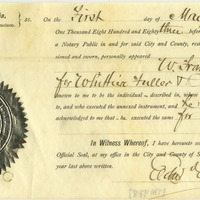 ss. On the First day of Ma
One Thousand Eight Hundred and Eighty three before
a Notary Public in and for said City and County, resid
sioned and sworn, personally appeared
W. Fra
for Whittier Fuller &
known to me to be the individual described in,
to, and who executed the annexed instrument, and he
acknowledged to me that he executed the same
for
In Witness Whereof, I have hereunto
Official Seal, at my office in the City and County of S
year last above written.